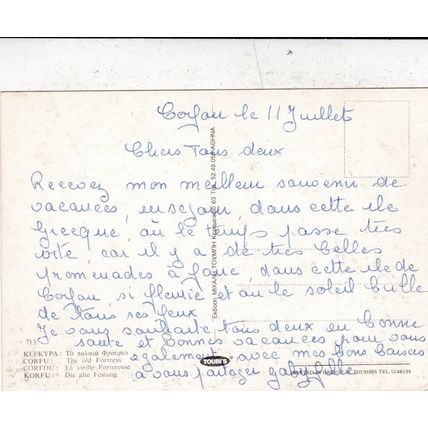 Corfou le 11 Juillet
Chers Tous deux
Recevez mon meilleur souvenir de
vacances, en séjour, dans cette ile
Grecque, ou le temps passe très
vite, car il y a de très belles
promenades à faire dans cette ile de
Corfou, si fleurie et ou le soleil brille
de tous ses feux
Je vous souhaite tous deux en bonne
santé et bonnes vacances pour vous
également avec mes bons baisers
à vous partager gaby
713
ΚΕΡΚΥΡΑ: Το παλαιό Φρούριο
CORFU: The old Fortress
CORFOU: La vieille Forteresse
KORFU: Die alte Festung
TOUBI'S
TEL 5248058